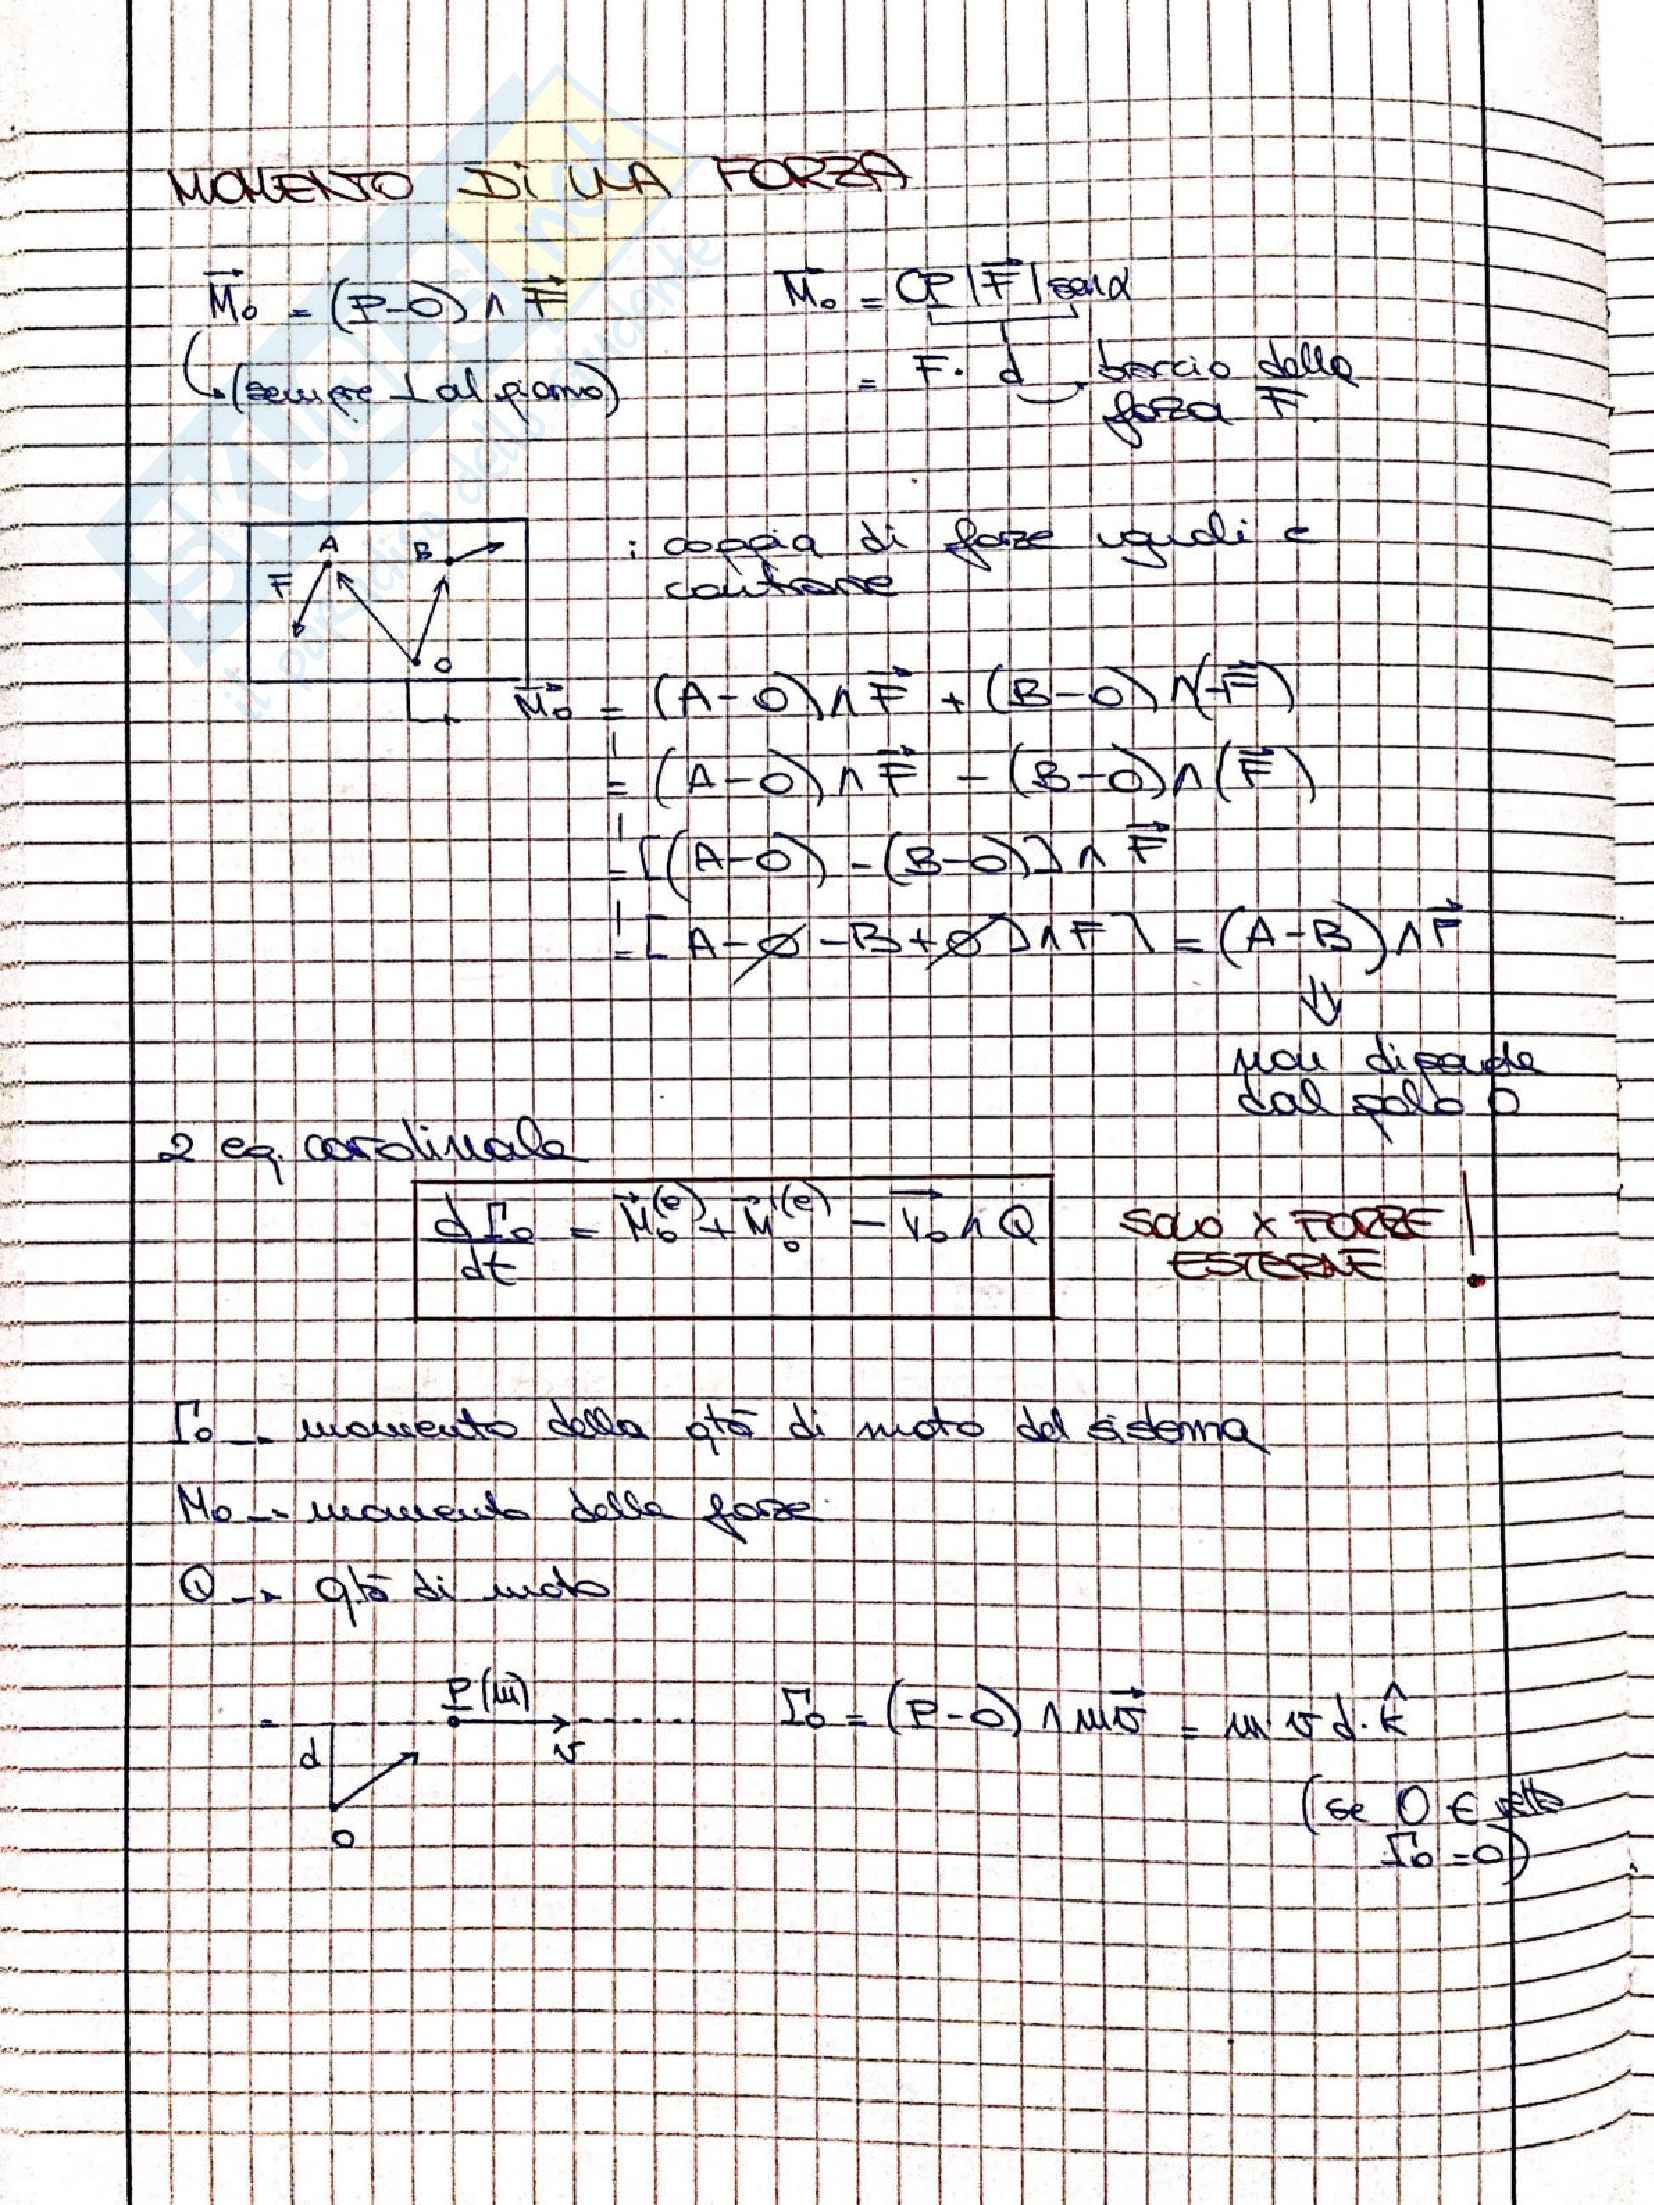 MOMENTO DI UNA FORZA
M⃗o = (P-O) ∧ F⃗
M⃗o = OP |F⃗| sen α
(sempre ⊥ al piano)
= F · d → braccio della
forza F.
A B F O
: coppia di forze uguali e
contrarie
M⃗o = (A-O) ∧ F⃗ + (B-O) ∧ (-F⃗)
= (A-O) ∧ F⃗ - (B-O) ∧ (F⃗)
= [(A-O) - (B-O)] ∧ F⃗
= [A-O-B+O] ∧ F] = (A-B) ∧ F⃗
⇓
non dipende
dal polo O
2 eq. cardinale
dΓo/dt = M⃗o^(e) + M⃗'o^(e) - v⃗o ∧ Q
SOLO X FORZE
ESTERNE !
Γo → momento della qtà di moto del sistema
Mo → momento delle forze
Q → qtà di moto
P(m)
d v
O
Γo = (P-O) ∧ mv⃗ = m v d · k̂
(se O ∈ retta
Γo = 0)
SKUOLA.net
il paradiso dello studente